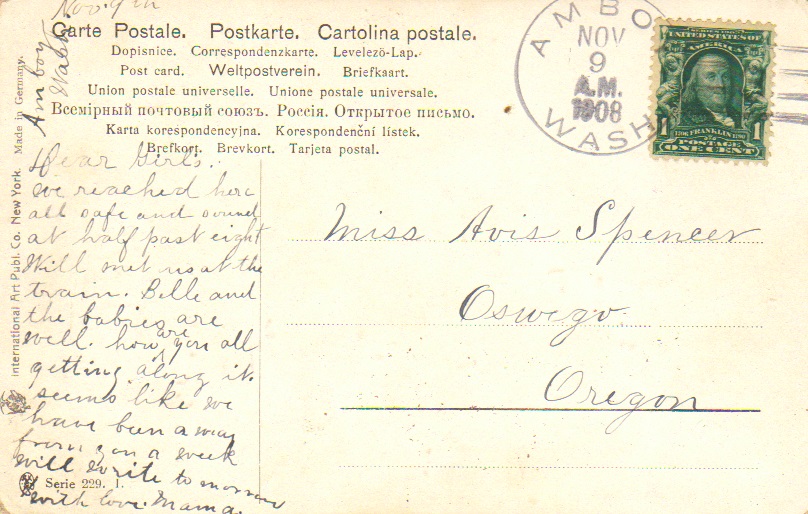 Nov. 9th
Amboy
Wash.
Carte Postale. Postkarte. Cartolina postale.
Dopisnice. Correspondenzkarte. Levelezö-Lap.
Post card. Weltpostverein. Briefkaart.
Union postale universelle. Unione postale universale.
Всемірный почтовый союзъ. Россія. Открытое письмо.
Karta korespondencyjna. Korespondenční lístek.
Brefkort. Brevkort. Tarjeta postal.
AMBOY
NOV
9
A.M.
1908
WASH.
UNITED STATES OF
AMERICA
FRANKLIN
1 1
POSTAGE
ONE CENT
Dear Girls.
we reached here
all safe and sound
at half past eight
Will met us at the
train. Belle and
the babies are
well. how are you all
getting along it
seems like we
have been away
from you a week
will write to morrow
with love. Mama.
Miss Avis Spencer
Oswego
Oregon
International Art Publ. Co. New York. Made in Germany.
Serie 229. 1.